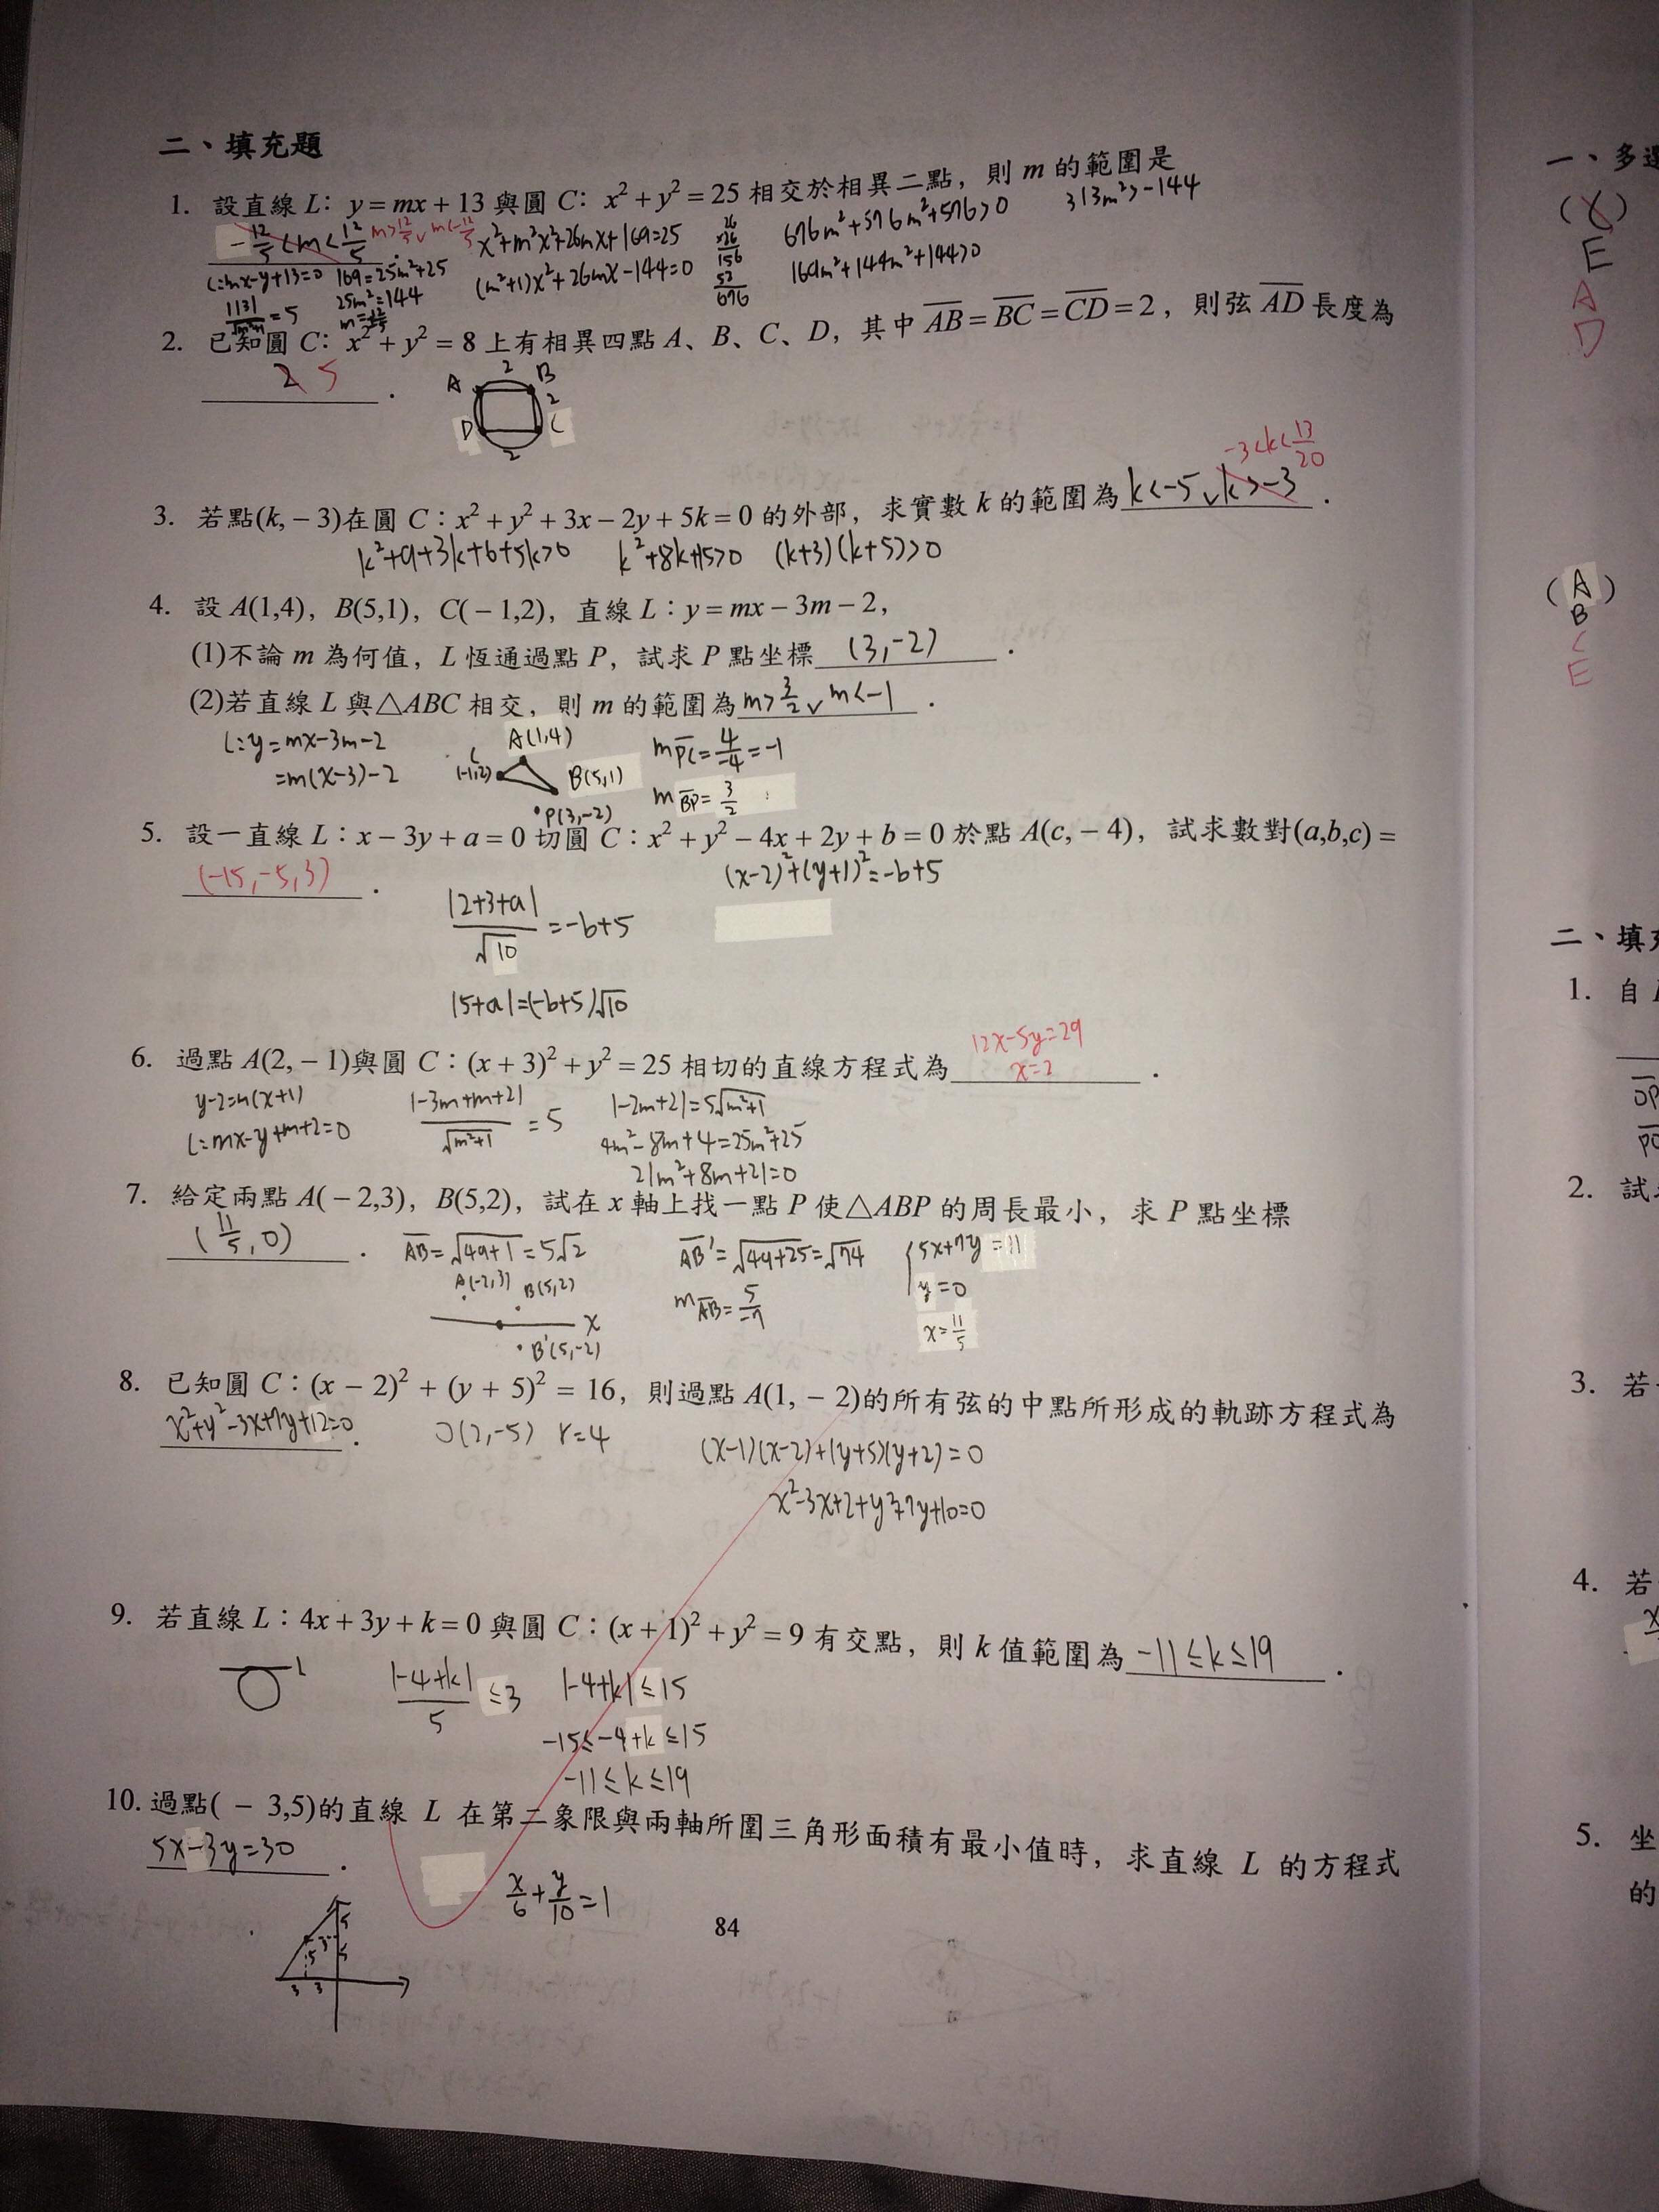 二、填充題
1. 設直線 L：y = mx + 13 與圓 C：x² + y² = 25 相交於相異二點，則 m 的範圍是
-12/5 < m < 12/5 m>12/5 ∨ m<-12/5 x²+m²x²+26mx+169=25 676m²+576m²+576>0 313m²>-144
L=mx-y+13=0 169=25m²+25 (m²+1)x²+26mx-144=0 26 ×26 156 52 676 169m²+144m²+144>0
|13|/√m²+1 = 5 25m²=144
2. 已知圓 C：x² + y² = 8 上有相異四點 A、B、C、D，其中 AB = BC = CD = 2，則弦 AD 長度為
2 5 .
A 2 B
2
D C
2
-3<k<13/20
3. 若點(k, − 3)在圓 C：x² + y² + 3x − 2y + 5k = 0 的外部，求實數 k 的範圍為 k<-5 ∨ k>-3 .
k²+9+3k+6+5k>0 k²+8k+15>0 (k+3)(k+5)>0
4. 設 A(1,4)，B(5,1)，C( − 1,2)，直線 L：y = mx − 3m − 2，
(1)不論 m 為何值，L 恆通過點 P，試求 P 點坐標 (3,-2) .
(2)若直線 L 與△ABC 相交，則 m 的範圍為 m>3/2 ∨ m<-1 .
L=y=mx-3m-2 A(1,4) mPC=4/-4=-1
=m(x-3)-2 C(-1,2) B(5,1) mBP=3/2
P(3,-2)
5. 設一直線 L：x − 3y + a = 0 切圓 C：x² + y² − 4x + 2y + b = 0 於點 A(c, − 4)，試求數對(a,b,c) =
(-15,-5,3) . (x-2)²+(y+1)²=-b+5
|2+3+a|/√10 =-b+5
|5+a|=(-b+5)√10
6. 過點 A(2, − 1)與圓 C：(x + 3)² + y² = 25 相切的直線方程式為 12x-5y=29 x=2 .
y-2=m(x+1) |-3m+m+2|/√m²+1 = 5 |-2m+2|=5√m²+1
L=mx-y+m+2=0 4m²-8m+4=25m²+25
21m²+8m+21=0
7. 給定兩點 A( − 2,3)，B(5,2)，試在 x 軸上找一點 P 使△ABP 的周長最小，求 P 點坐標
(11/5,0) . AB=√49+1=5√2 AB'=√49+25=√74 5x+7y=11
A(-2,3) B(5,2) mAB=5/-7 y=0
x x=11/5
B'(5,-2)
8. 已知圓 C：(x − 2)² + (y + 5)² = 16，則過點 A(1, − 2)的所有弦的中點所形成的軌跡方程式為
x²+y²-3x+7y+12=0 . O(2,-5) r=4 (x-1)(x-2)+(y+5)(y+2)=0
x²-3x+2+y²+7y+10=0
9. 若直線 L：4x + 3y + k = 0 與圓 C：(x + 1)² + y² = 9 有交點，則 k 值範圍為 -11≤k≤19 .
L |-4+k|/5 ≤3 |-4+k|≤15
-15≤-4+k≤15
-11≤k≤19
10. 過點( − 3,5)的直線 L 在第二象限與兩軸所圍三角形面積有最小值時，求直線 L 的方程式
5x-3y=30 .
x/6+y/10=1
5
3
5 5
3 3
84
一、多
E
A
D
(A)
B
C
E
二、填
1. 自
2. 試
3. 若
4. 若
5. 坐
的